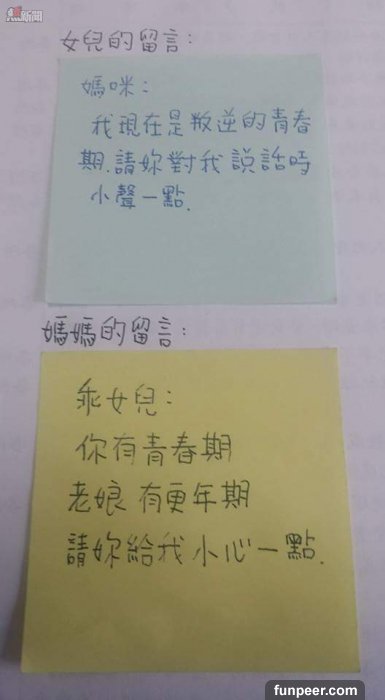 新聞
女兒的留言:
媽咪:
我現在是叛逆的青春
期.請妳對我說話時
小聲一點.
媽媽的留言:
乖女兒:
你有青春期
老娘有更年期
請妳給我小心一點.
funpeer.com